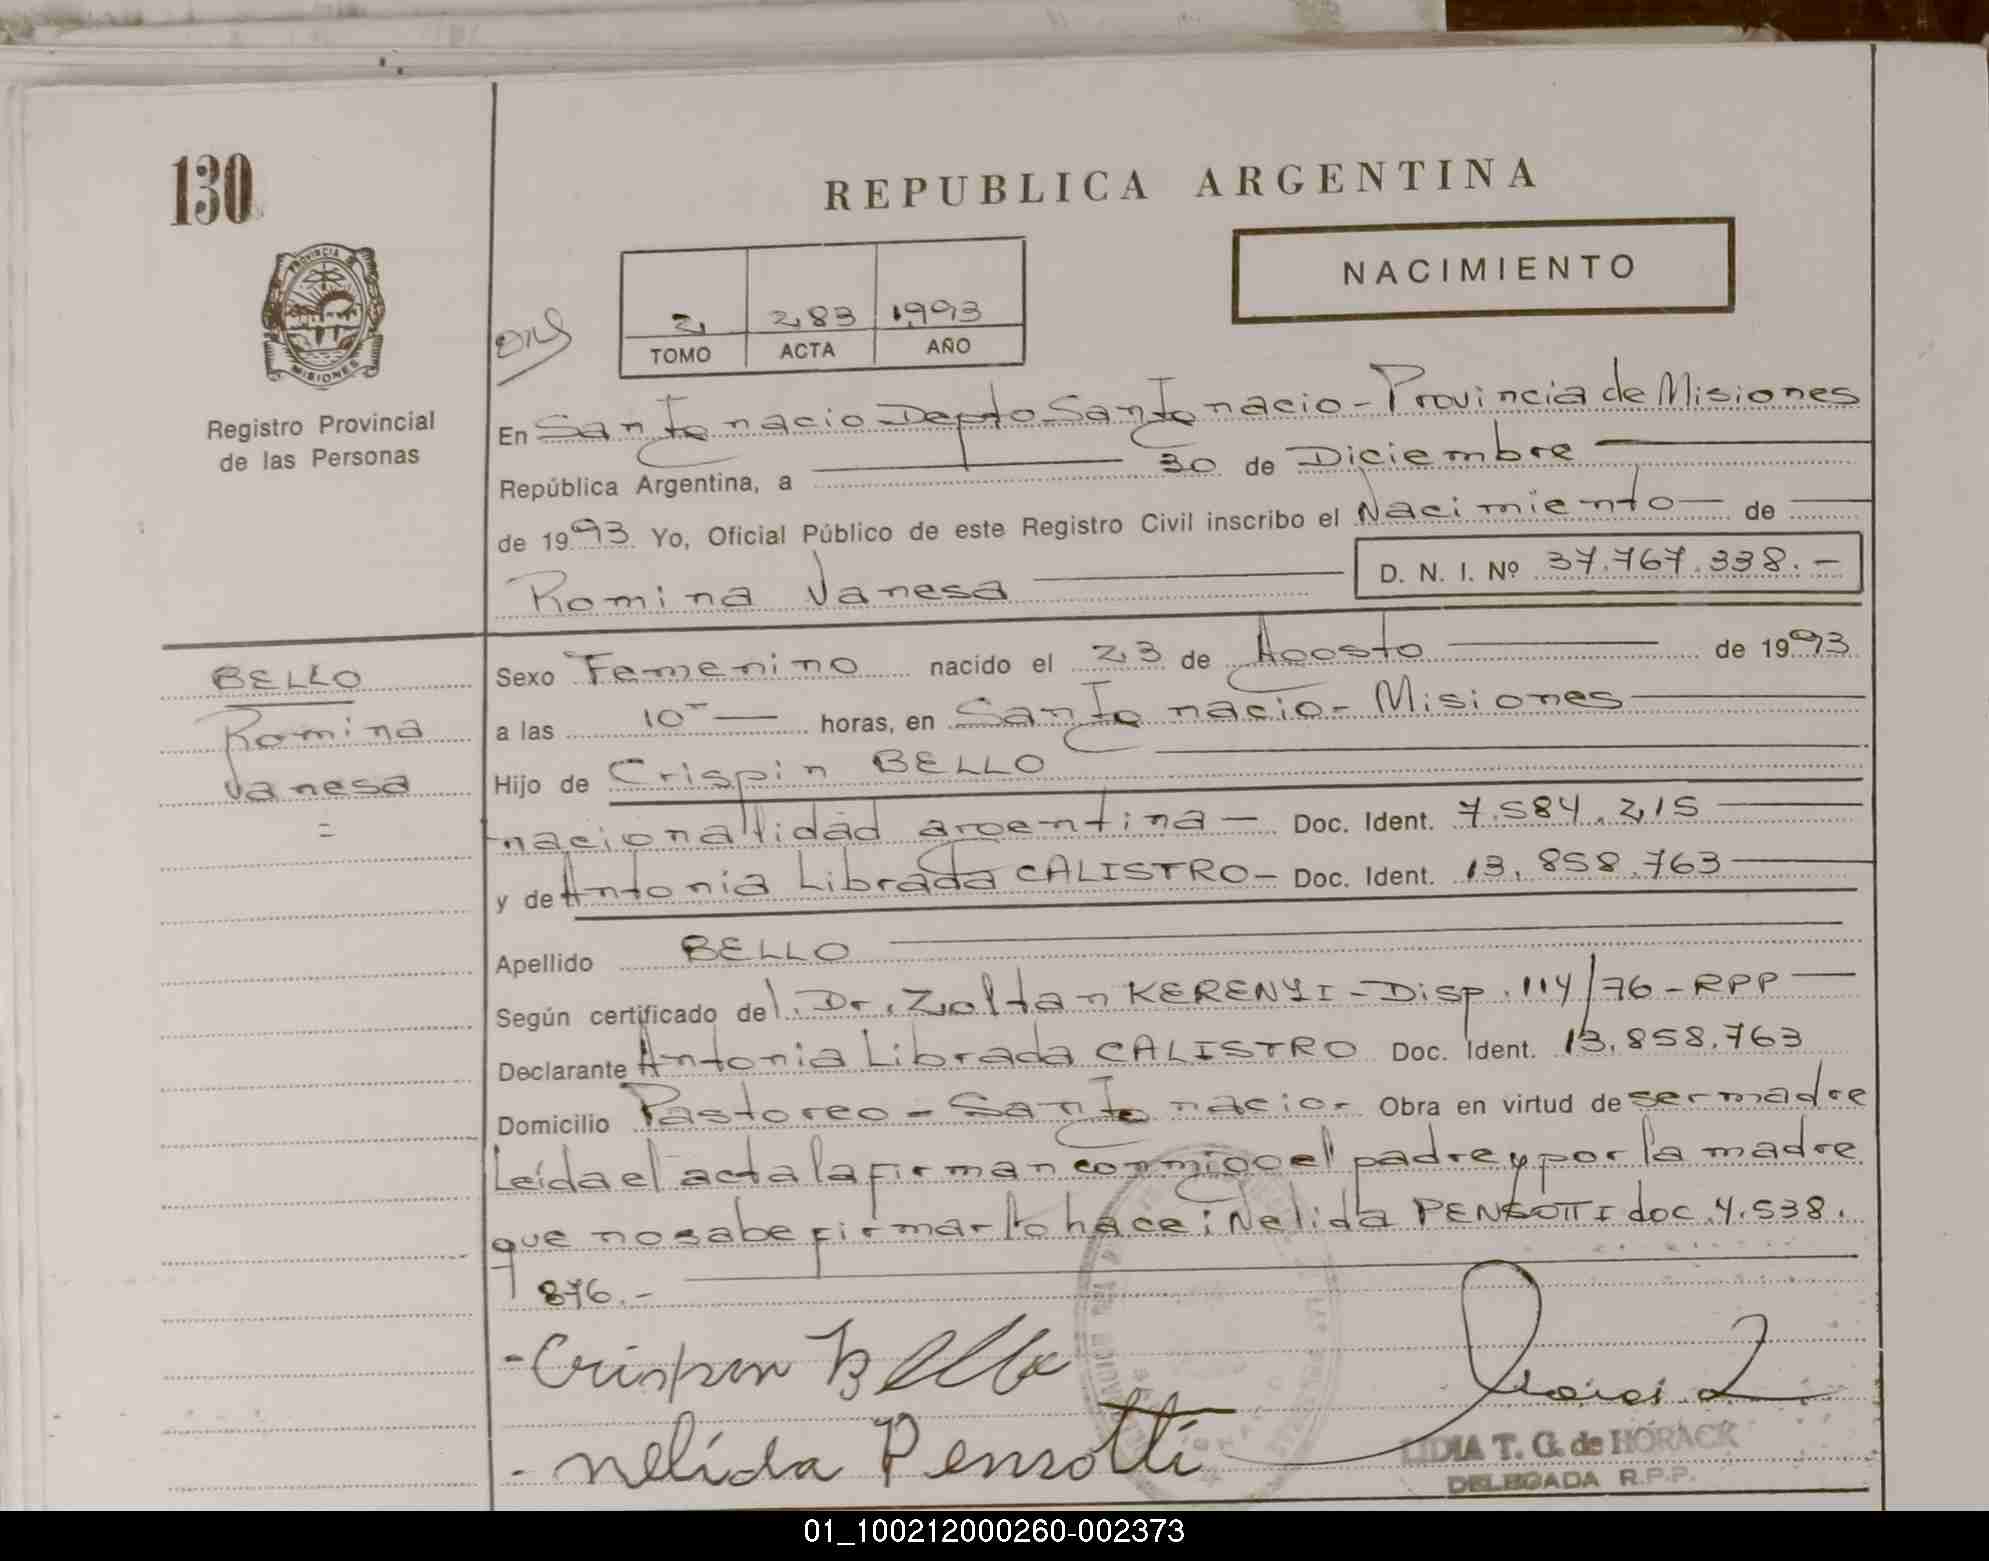 130
REPUBLICA ARGENTINA
NACIMIENTO
PROVINCIA DE
MISIONES
Registro Provincial
de las Personas
2 283 1993
TOMO ACTA AÑO
En San Ignacio Depto San Ignacio - Provincia de Misiones
República Argentina, a 30 de Diciembre
de 1993 Yo, Oficial Público de este Registro Civil inscribo el Nacimiento de
Romina Vanesa D. N. I. Nº 37.767.338.-
BELLO
Romina
Vanesa
=
Sexo Femenino nacido el 23 de Agosto de 1993
a las 10 horas, en San Ignacio - Misiones
Hijo de Crispin BELLO
nacionalidad argentina - Doc. Ident. 7.584.215
y de Antonia Librada CALISTRO - Doc. Ident. 13.858.763
Apellido BELLO
Según certificado del Dr. Zoltan KERENYI - Disp. 114/76 - RPP
Declarante Antonia Librada CALISTRO Doc. Ident. 13.858.763
Domicilio Pastoreo - San Ignacio - Obra en virtud de ser madre
Leída el acta la firman conmigo el padre y por la madre
que no sabe firmar lo hace: Nelida PENSOTTI doc. 4.538.
876.-
- Crispin Bello
- nelída Pensotti
LIDIA T. G. de HORACK
DELEGADA R.P.P.
01_100212000260-002373